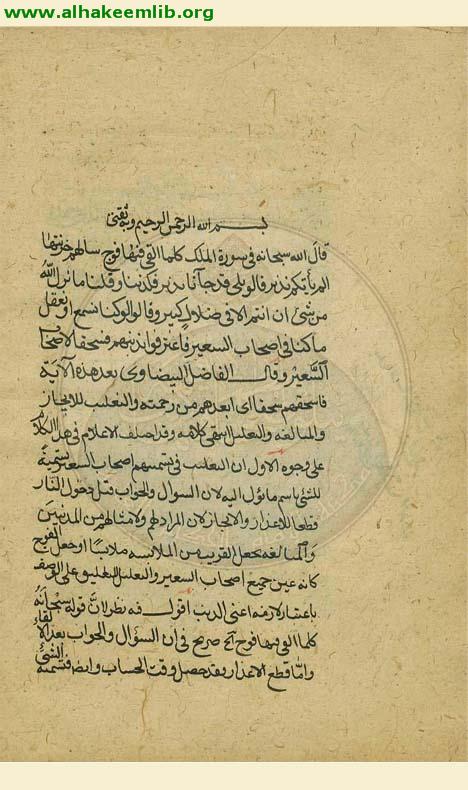 www.alhakeemlib.org
بسم الله الرحمن الرحيم وبه ثقتي
قال الله سبحانه في سورة الملك كلما القي فيها فوج سالهم خزنتها
الم ياتكم نذير قالوا بلى قد جآنا نذير فكذبنا وقلنا ما نزل الله
من شئ ان انتم الا في ضلال كبير وقالوا لو كنا نسمع او نعقل
ما كنا في اصحاب السعير فاعترفوا بذنبهم فسحقا لاصحاب
السعير وقال الفاضل البيضاوى بعد هذه الآية
فاسحقهم سحقا اى ابعدهم من رحمته والتغليب للايجاز
والمبالغه والتعليل انتهى كلامه وقد اختلف الاعلام في هذا الكلام
على وجوه الاول ان التغليب في تسميتهم اصحاب السعير تسمية
للشئ باسم ما يؤل اليه لان السوال والجواب قبل دخول النار
قطعا للاعذار والايجاز لان المراد لهم ولامثالهم من المذنبين
والمبالغه بجعل القريب من الملابسه ملابسا او جعل الفوج
كانه عين جميع اصحاب السعير والتعليل للتعليق على الوصف
باعتبار لازمه اعنى الذنب اقول فيه نظر لان قوله سبحانه
كلما القي فيها فوج آلخ صريح في ان السؤال والجواب بعد الالقاء
واما قطع الاعذار فقد حصل وقت الحساب وايضا فتسمية الشئ